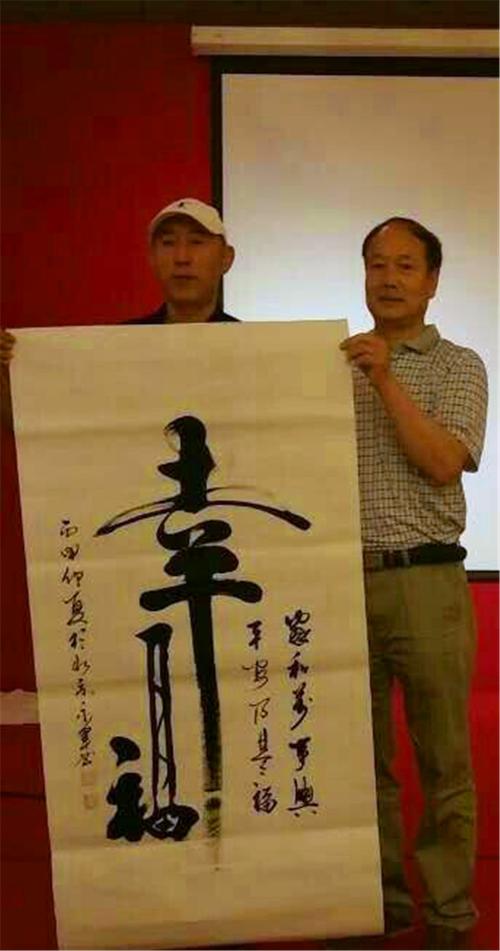 家和萬事興
平安乃是福
幸福
丙申仲夏於北京永軍書